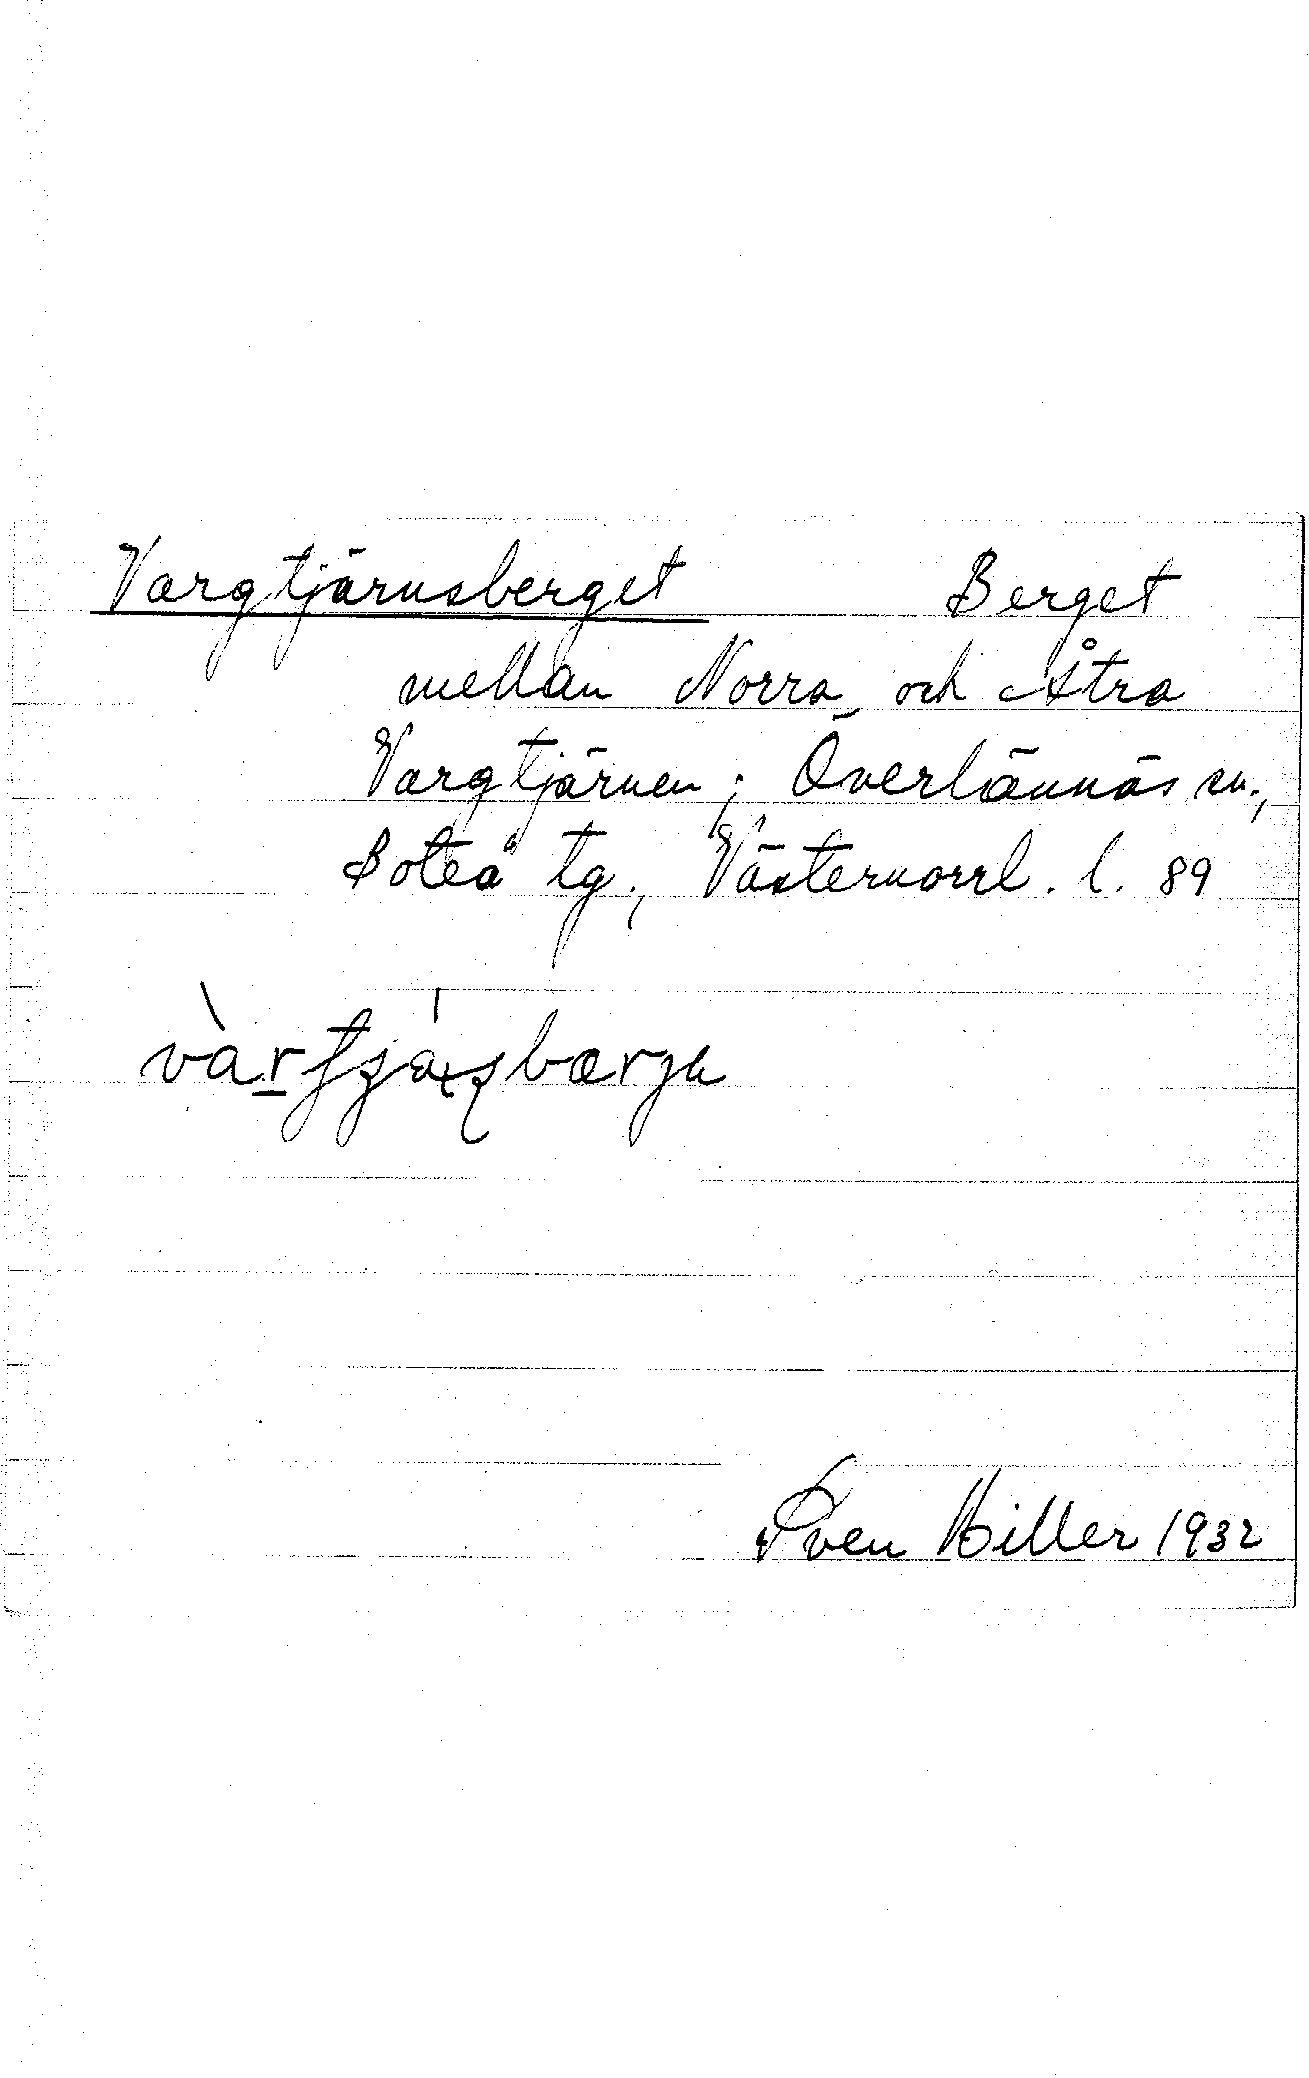 Vargtjärnsberget Berget
mellan Norra och Åtra
Vargtjärnen; Överlännäs sn.,
Boteå tg., Västernorrl. l. 89
Sven Hiller 1932